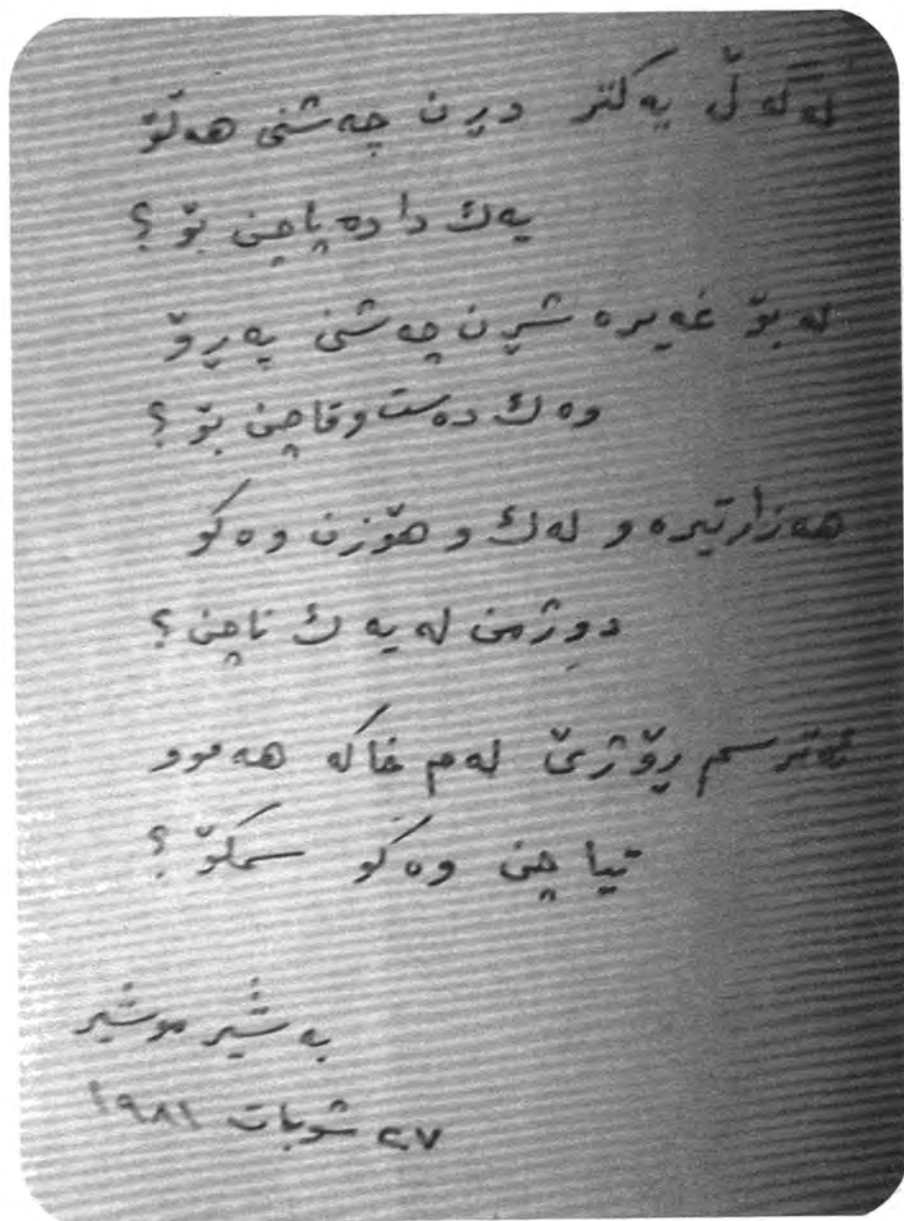 لەگەڵ یەکتر دڕن چەشنی هەڵۆ
یەك دادەپاچن بۆ؟
لەبۆ غەیرە شڕن چەشنی پەڕۆ
وەك دەست وقاچن بۆ؟
هەزار تیرە و لەك و هۆزن وەکو
دوژمن لەیەك ناچن؟
ئەترسم ڕۆژێ لەم خاکە هەموو
تیا چن وەکو سمکۆ؟
بەشیر موشیر
٢٧ شوبات ١٩٨١